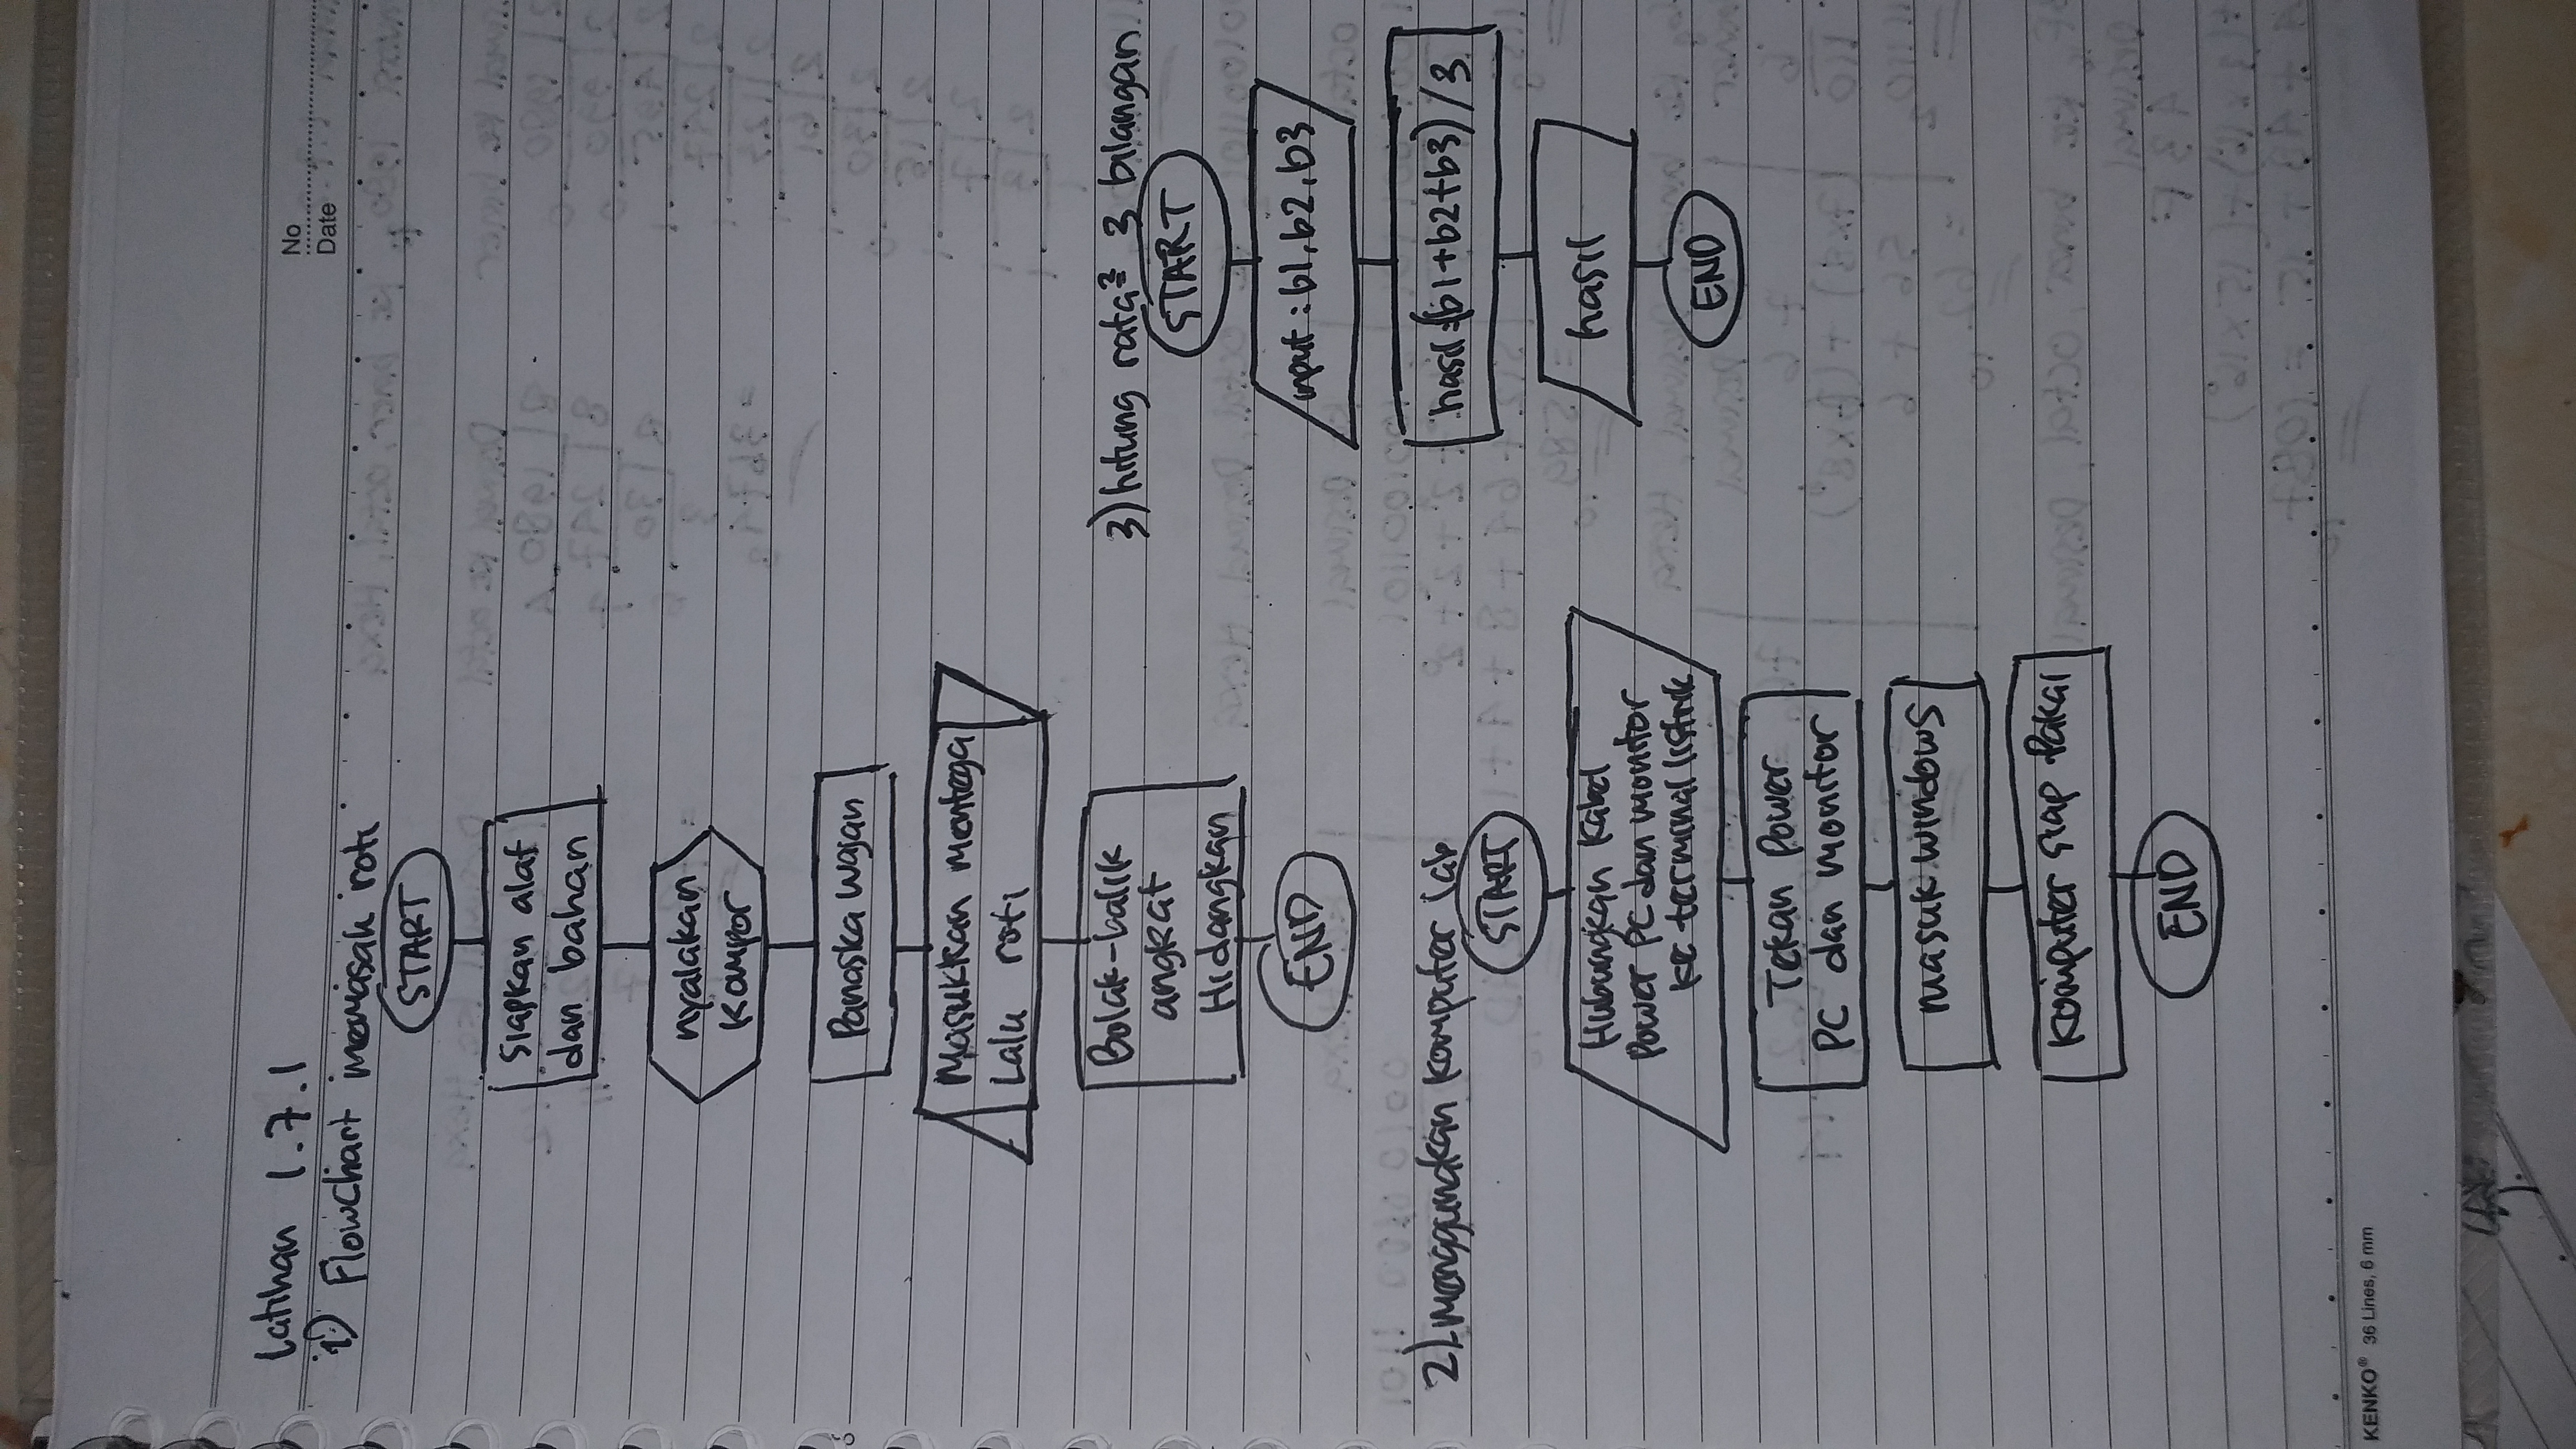 No
Date
Latihan 1.7.1
1) Flowchart memasak roti
START
Siapkan alat
dan bahan
nyalakan
Kompor
Panaska wajan
Masukkan mentega
Lalu roti
Bolak-balik
angkat
Hidangkan
END
2) menggunakan komputer lab
START
Hubungkan Kabel
Power PC dan monitor
ke terminal listrik
Tekan Power
PC dan monitor
masuk windows
Komputer siap Pakai
END
3) hitung rata² 3 bilangan
START
input : b1, b2, b3
hasil = (b1+b2+b3) / 3
hasil
END
KENKO® 36 Lines, 6 mm